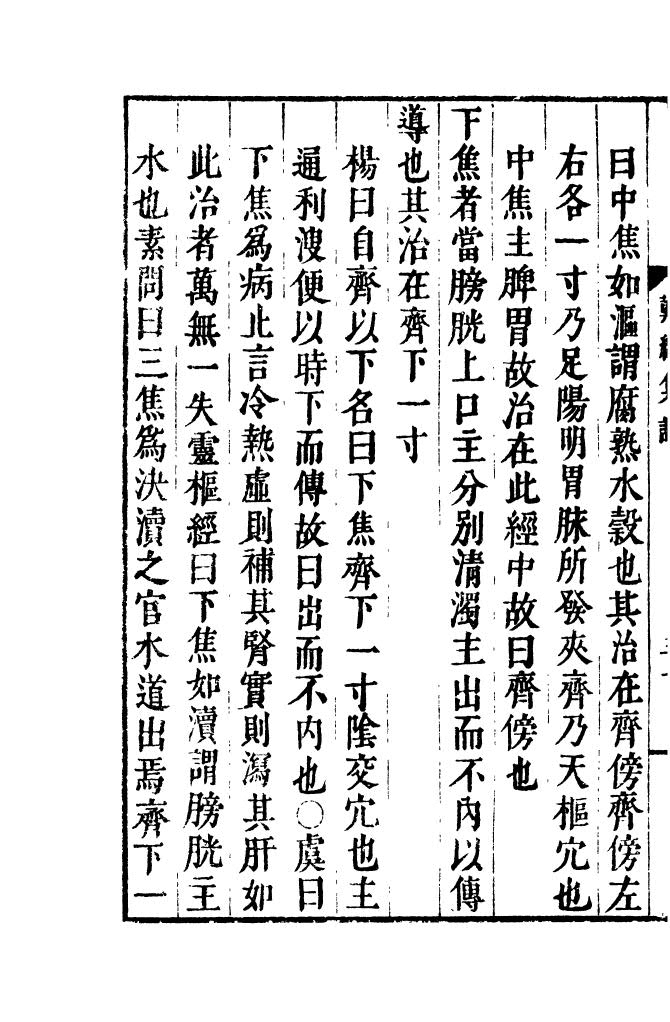 曰中焦如漚謂腐熟水穀也其治在齊傍齊傍左
右各一寸乃足陽明胃脉所發夾齊乃天樞穴也
中焦主脾胃故治在此經中故曰齊傍也
下焦者當膀胱上口主分别清濁主出而不內以傳
導也其治在齊下一寸
楊曰自齊以下名曰下焦齊下一寸陰交穴也主
通利溲便以時下而傳故曰出而不內也○虞曰
下焦爲病止言冷熱虛則補其腎實則瀉其肝如
此治者萬無一失靈樞經曰下焦如瀆謂膀胱主
水也素問曰三焦爲決瀆之官水道出焉齊下一